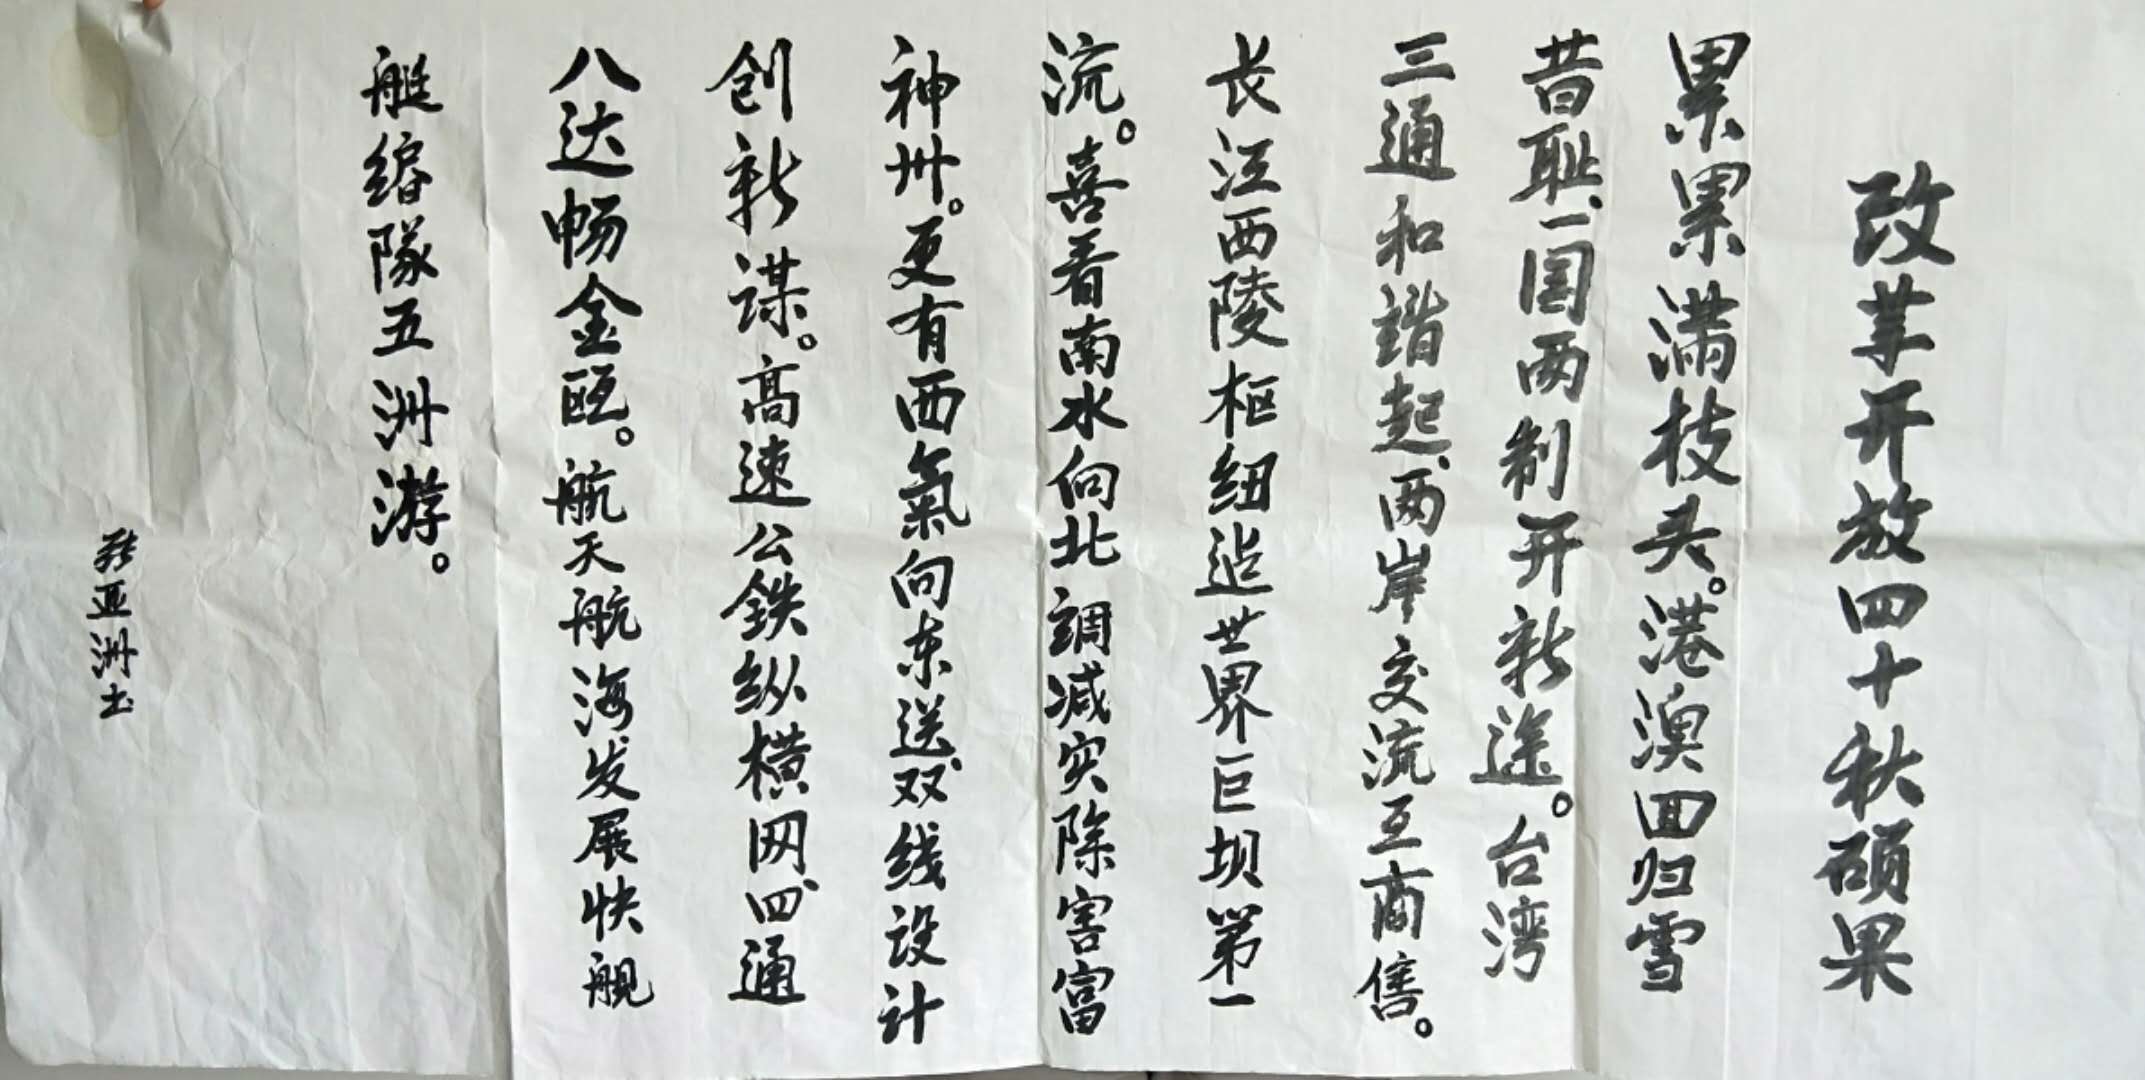 改革开放四十秋硕果
累累满枝头。港澳回归雪
昔耻、一国两制开新途。台湾
三通和谐起、两岸交流互商售。
长江西陵枢纽造世界巨坝第一
流。喜看南水向北調减灾除害富
神州。更有西氣向东送、双线设计
创新谋。高速公鉄纵横网、四通
八达畅金瓯。航天航海发展快舰
艇编隊五洲游。
亚洲书